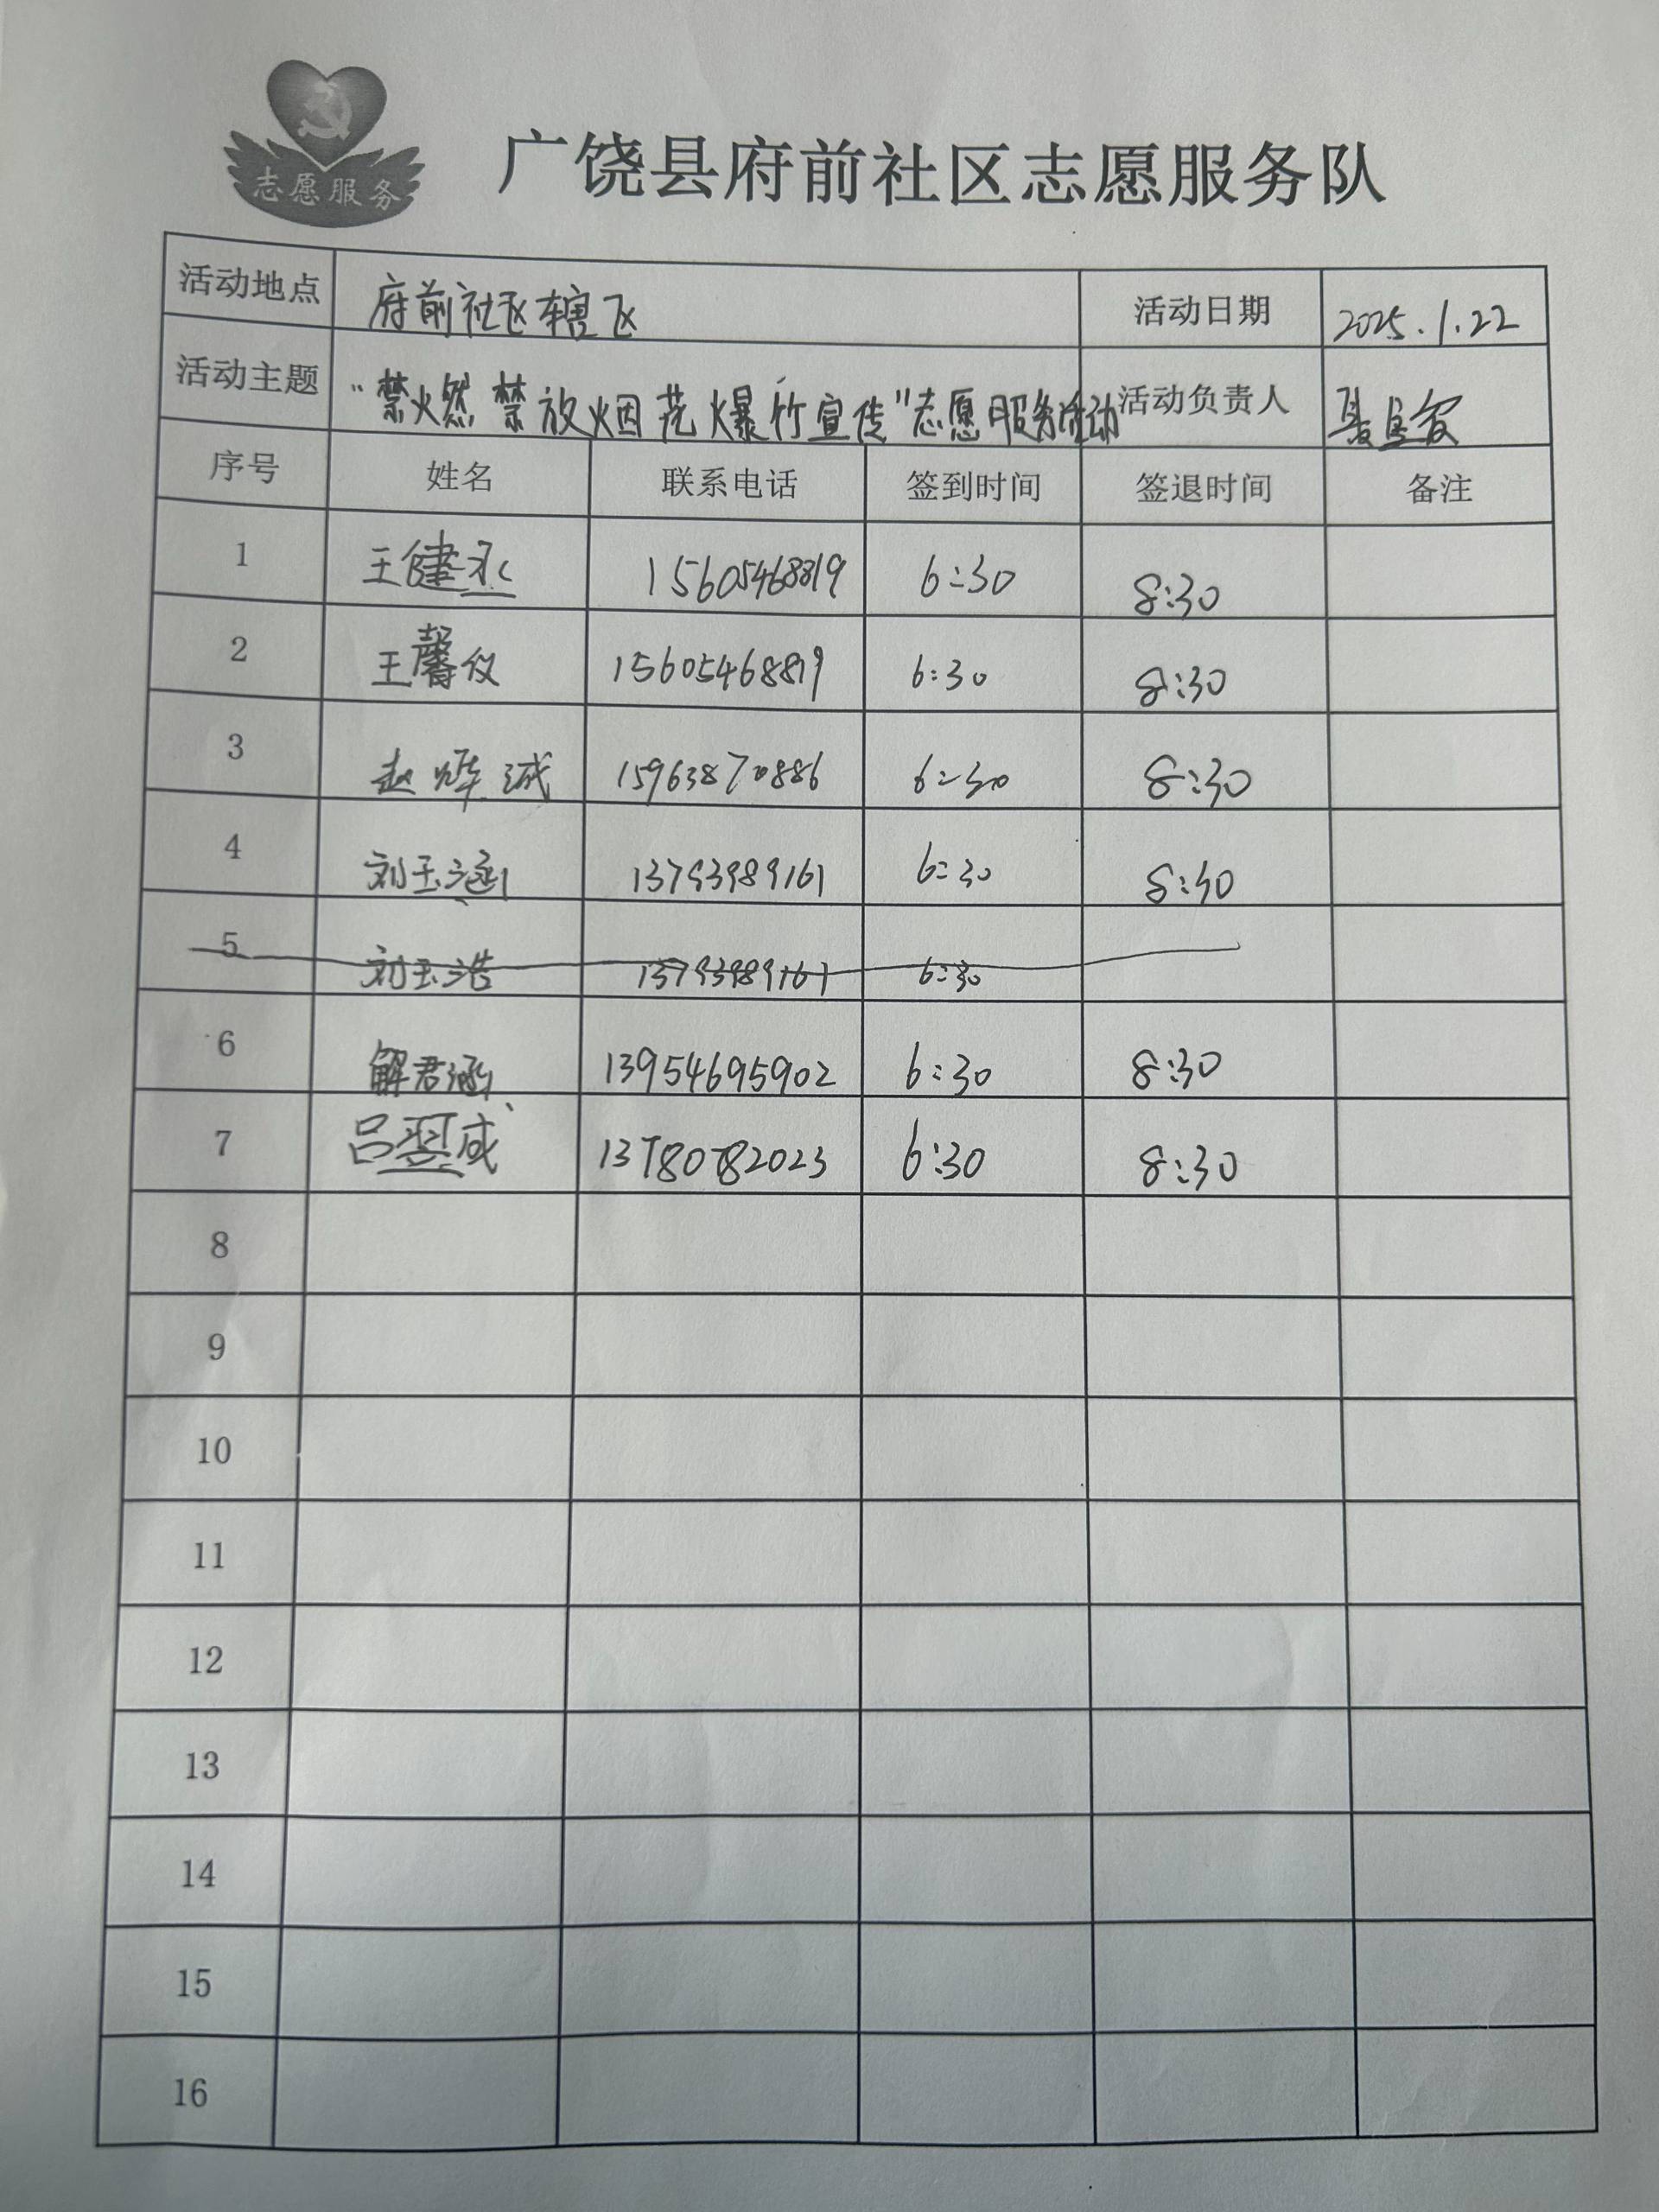 志愿服务
广饶县府前社区志愿服务队
活动地点 府前社区辖区 活动日期 2025.1.22
活动主题 "禁火燃禁放烟花爆竹宣传"志愿服务活动 活动负责人
序号 姓名 联系电话 签到时间 签退时间 备注
1 王健永 15605468819 6:30 8:30
2 王馨仪 15605468819 6:30 8:30
3 赵烨诚 15963870886 6:30 8:30
4 刘玉涵 13793989161 6:30 8:30
5 刘玉浩 13793989161 6:30
6 解君涵 13954695902 6:30 8:30
7 吕翌成 13780782023 6:30 8:30
8
9
10
11
12
13
14
15
16